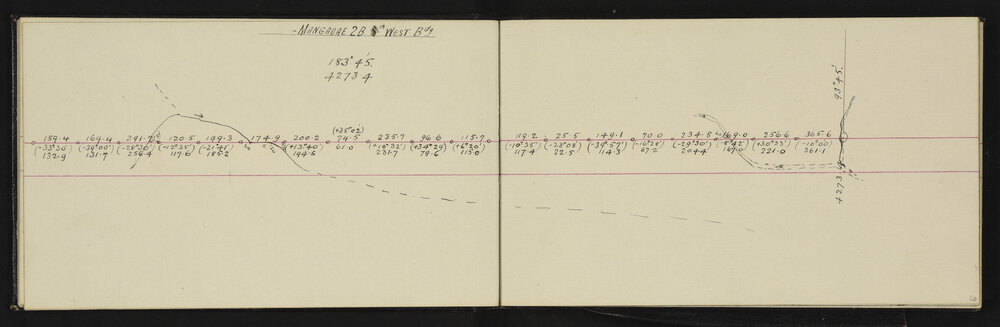 - MANGAORE 2B WEST Bdy
183° 45'.
4273.4
159.4 169.4 291.7 120.5 199.3 174.9 200.2 (+35°02') 74.5 235.7 96.6 115.7 119.2 25.5 149.1 70.0 234.8 169.0 256.6 365.6
(-33°30') (-39°00') (-28°30') (-12°35') (-21°41') (+13°40') 61.0 (+10°32') (+34°29') (+6°20') (-10°35') (-28°08') (-39°57') (-16°28') (-29°30') (-8°42') (+30°33') (-10°00')
132.9 131.7 256.4 117.6 185.2 194.6 231.7 79.6 115.0 117.4 22.5 114.3 67.2 204.4 167.0 221.0 361.1
93° 45'.
4273.4